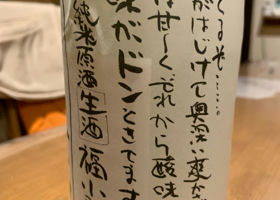 てるぞ……
がはじけて奥深い
は甘〜くそれから酸味
味がドンときてます
純米原酒生酒福小